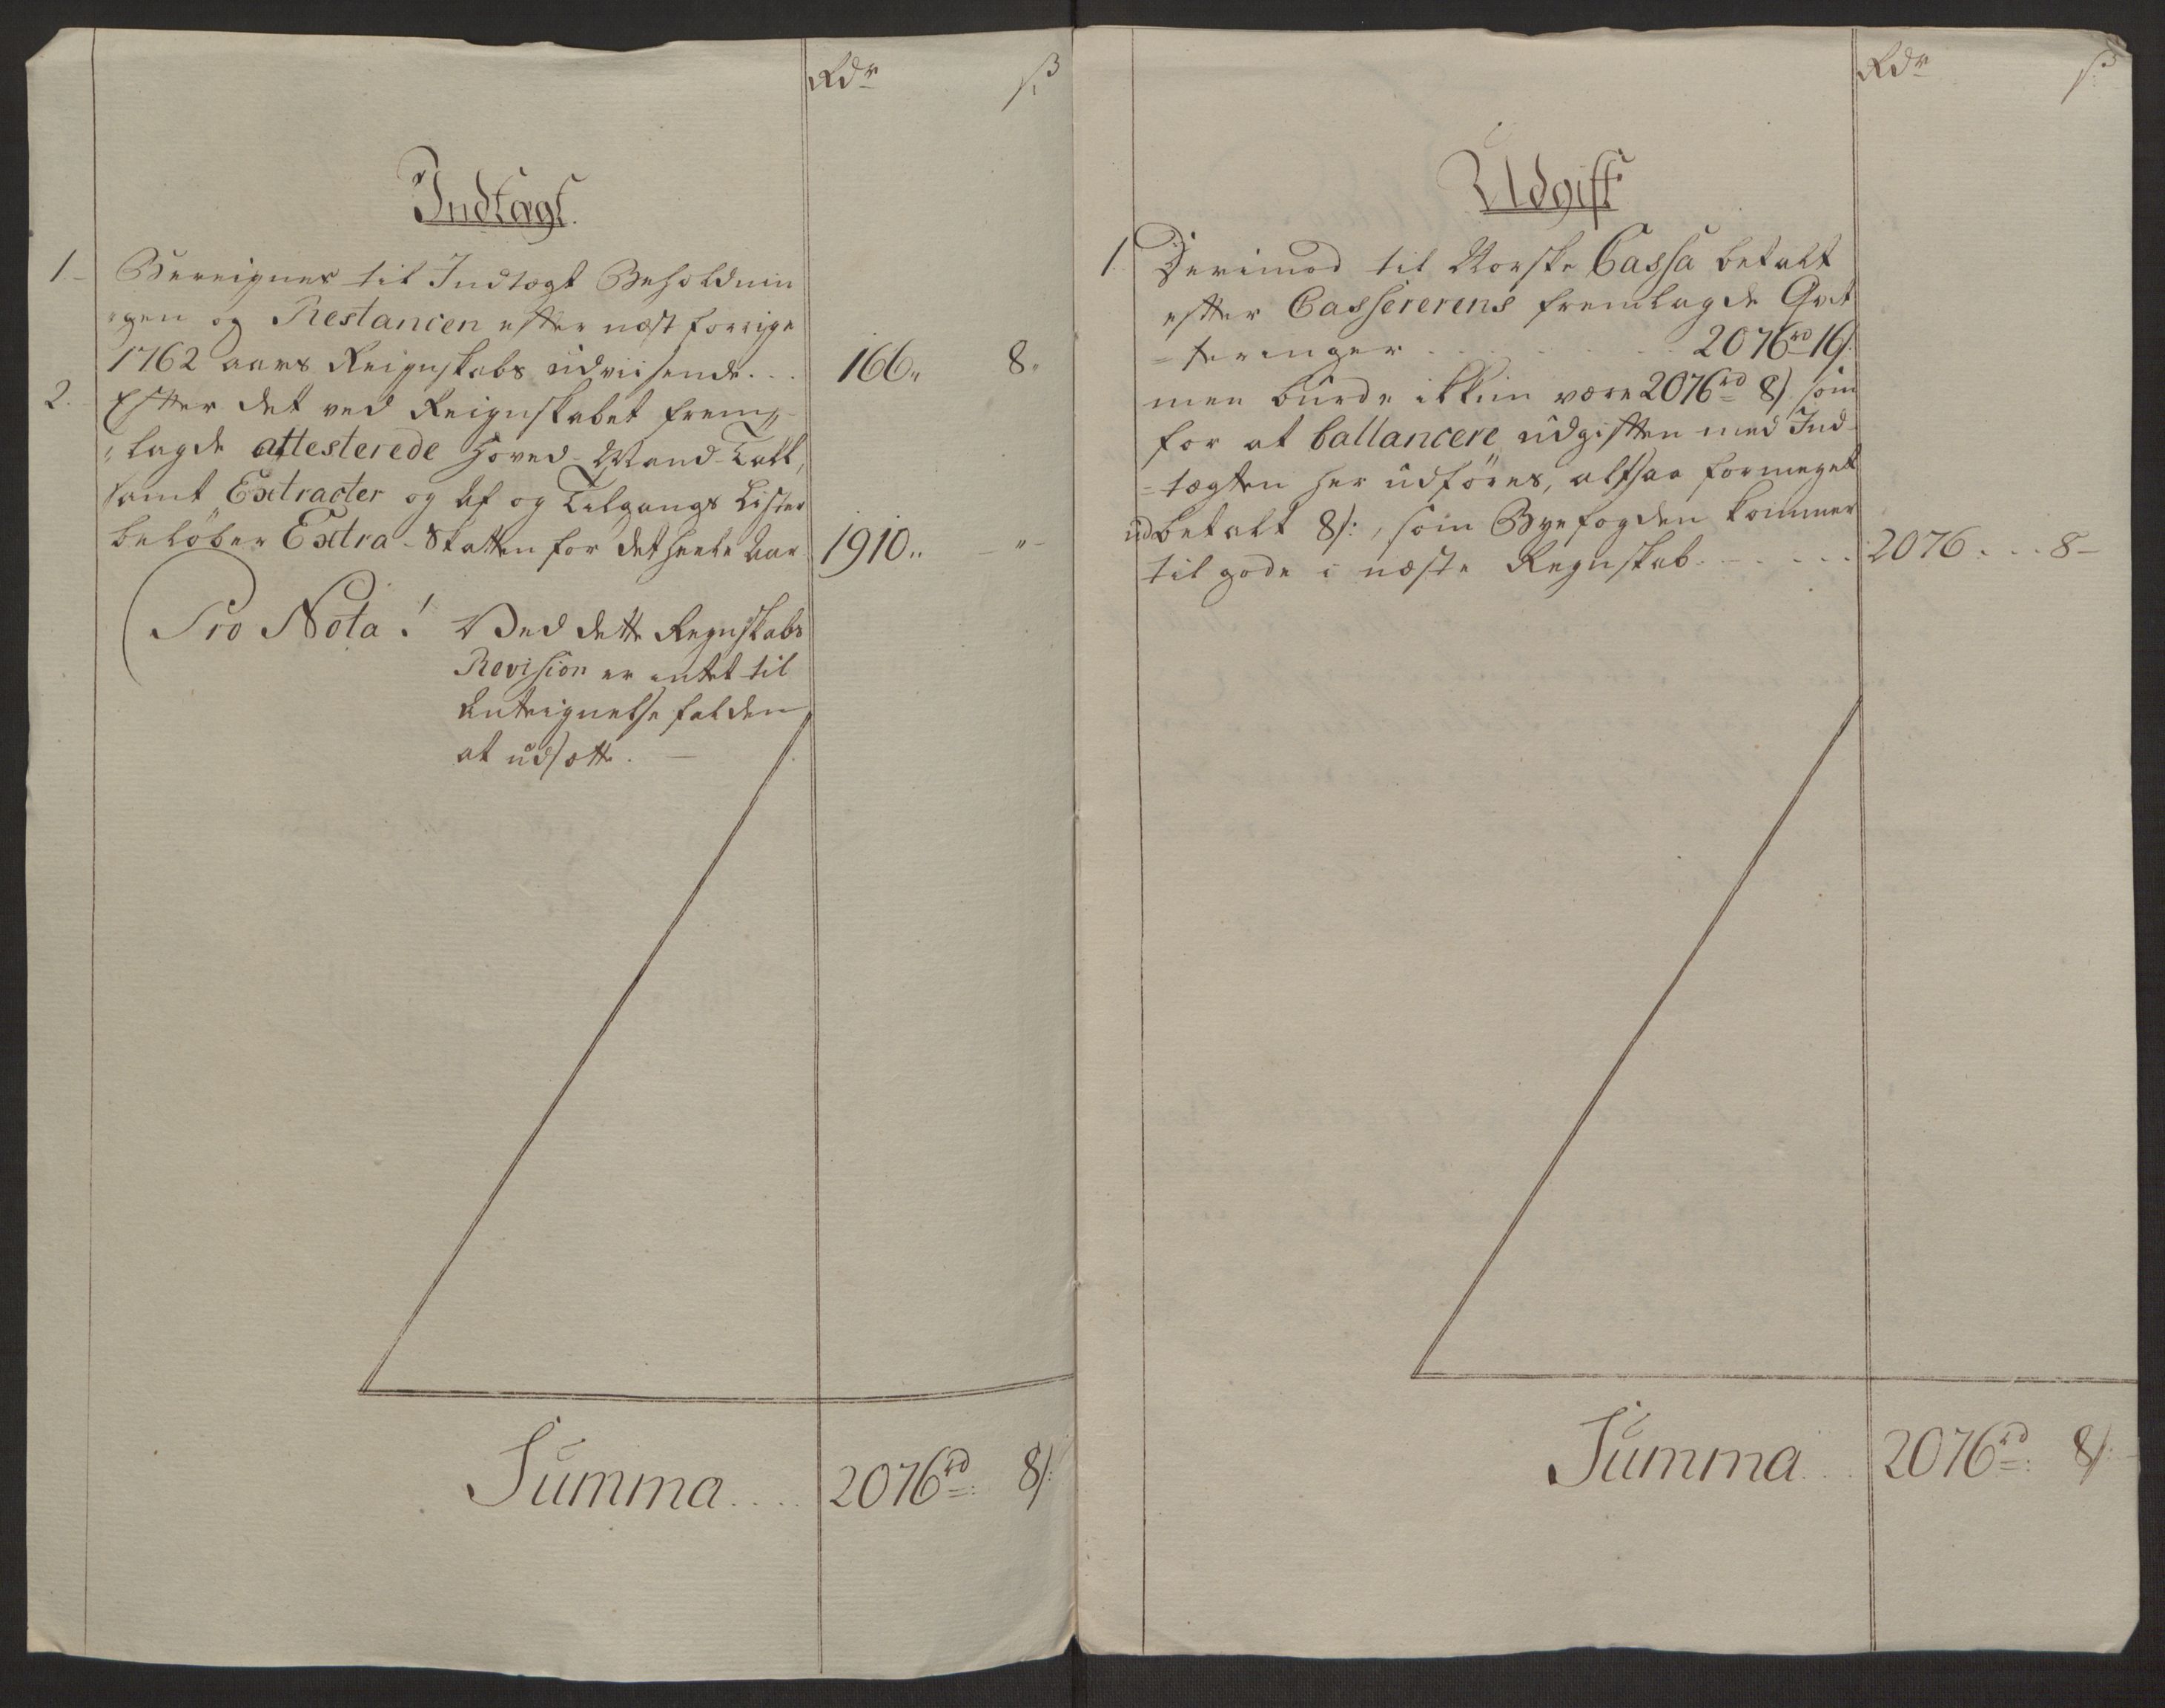 Rdr ß
Indtægt.
1. Bereignes til Indtægt Beholdnin
gen og Restancen efter næst forrige
1762 aars Reignskabs udviisende... 166,, 8,,
2. Efter det ved Reignskabet frem,,
,,lagde attesterede Hoved-Mand-Tall,
samt Extracter og Af og Tilgangs Lister
beløber Extra-Skatten for det heele Aar 1910,, - ,, -
Pro Nota! Ved dette Regnskabs
Revision er intet til
Anteignelse falden
at udsætte. —
Summa.... 2076rd: 8ß:
Rdr ß
Udgift
1. Derimod til Norske Cassa betalt
efter Cassererens fremlagde Qvit
=teringer . . . . . 2076rd 16ß.
men burde ikkun være 2076rd 8ß. som
for at ballancere udgiften med Ind-
=tægten her udføres, altsaa formeget
udbetalt 8ß:, som Byefogden kommer
til gode i næste Regnskab. - - . . . 2076 . . . 8 -
Summa... 2076rd: 8ß: -